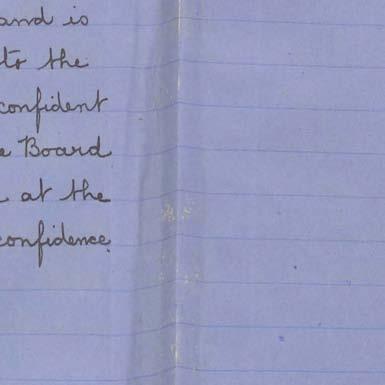 and is
to the
confident
e Board
at the
confidence